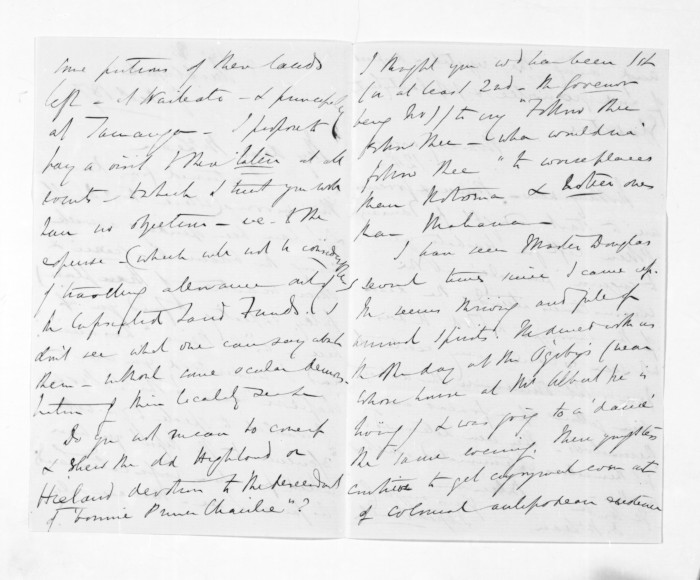 some portions of these lands
left - at Waikato - & principally
at Tauranga - I propose to
pay a visit to these latter at all
events - to which I trust you will
have no objection - i.e. to the
expense - (which will not be considerable)
of travelling allowance out of
the Confiscated Land Funds. I
don't see what one can say about
them - without some ocular demons-
tration of their locality
Do you not mean to come up
& shew the old Highland or
Hieland devotion to the descendant
of "bonnie Prince Charlie"?
I thought you wd have been 1st
(or at least 2nd - the Governor
being No 1) to cry "Follow thee
follow thee - (who wouldna'
follow thee" to worse places
than Rotorua & hotter ones
than Mahana -
I have seen Master Douglas
several times since I came up.
He seems thriving and full of
animal spirits. He dined with us
the other day at the Ogilbys (near
whose house at Mt Albert he is
living) & was going to a 'dance'
the same evening. These youngsters
contrive to get enjoyment even out
of colonial antipodean existence